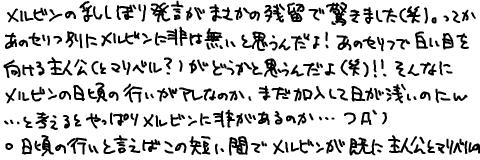 メルビンの乳しぼり発言がまさかの残留で驚きました(笑)。ってか
あのセリフ別にメルビンに非は無いと思うんだよ!あのセリフで白い目を
向ける主人公(とマリベル?)がどうかと思うんだよ(笑)!!そんなに
メルビンの日頃の行いがアレなのか、まだ加入して日が浅いのにw
…と考えるとやっぱりメルビンに非があるのか…
○日頃の行いと言えばこの短い間でメルビンが既に主人公とマリベルの